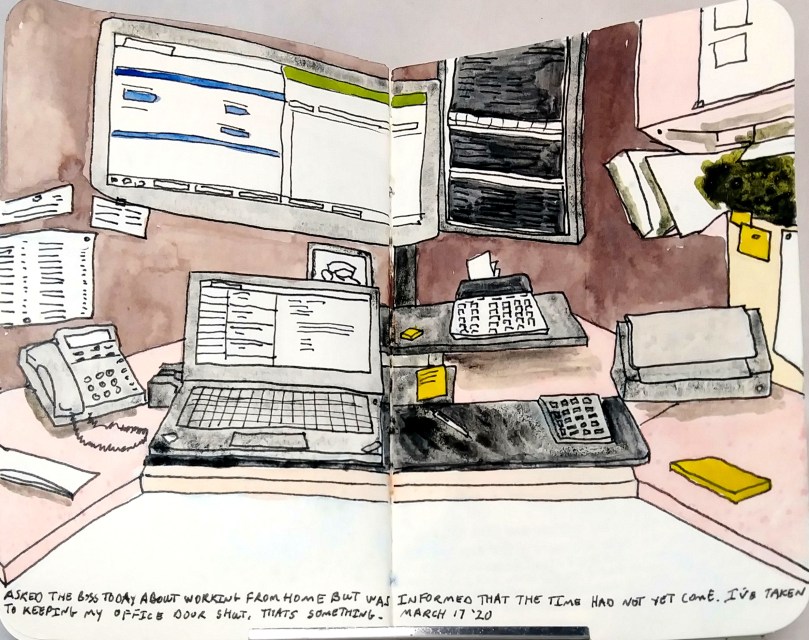 ASKED THE BOSS TODAY ABOUT WORKING FROM HOME BUT WAS INFORMED THAT THE TIME HAD NOT YET COME. I'VE TAKEN
TO KEEPING MY OFFICE DOOR SHUT. THATS SOMETHING. MARCH 17 '20